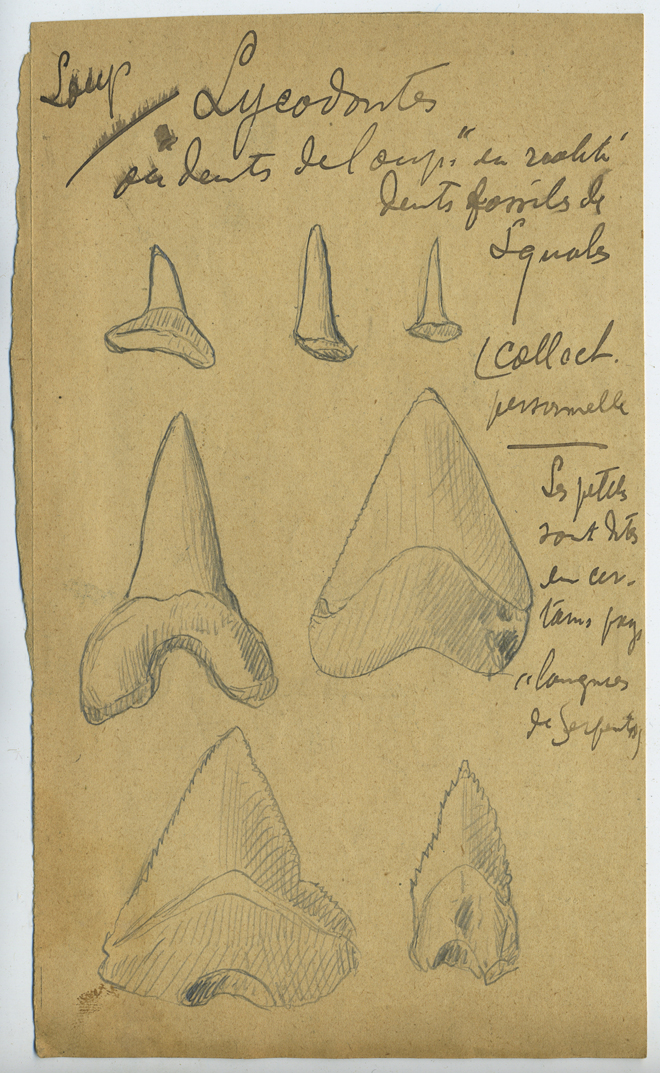 Loup
Lycodontes
ou "dents de loups" en realité
dents fossils de
Squales
(collect.
personnelle
Les petits
sont dits
en cer-
tains pays
"langues
de Serpents"